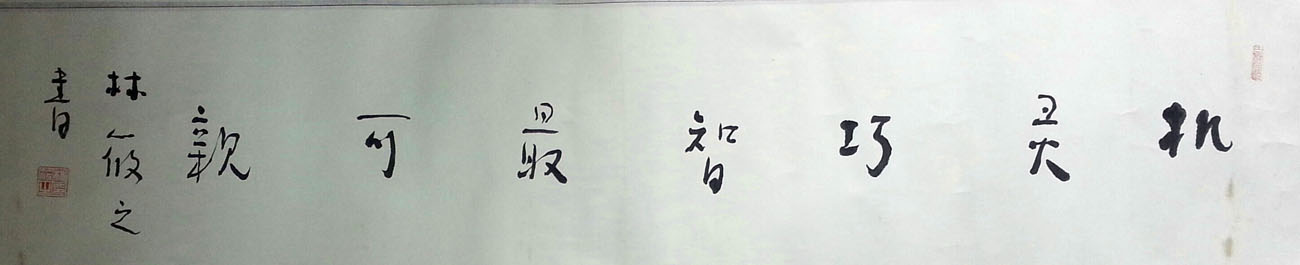 机灵巧智最可親
林筱之
書